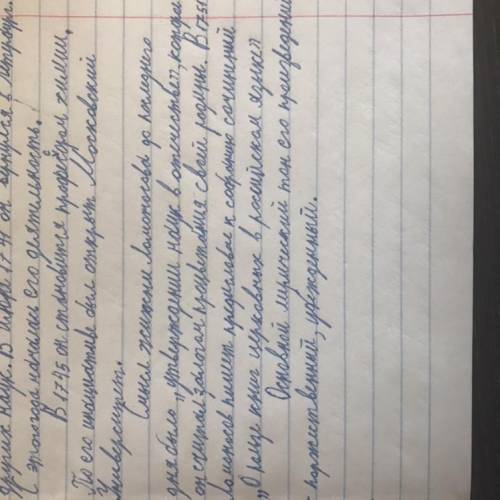 других наук. В июне 1741 он вернулся в Петербург.
С этого года началась его деятельность.
В 1745 он становится профессором химии.
По его инициативе был открыт Московский
Университет.
Смысл жизни Ломоносова до последнего
дня было „утверждении наук в отечестве", которые
он считал залогом процветания своей родины. В 1758
Ломоносов пишет предисловие к собранию сочинений
„О пользе книг церковных в российском языке"
Основной лирический тон его произведений
- торжественный, убежденный.